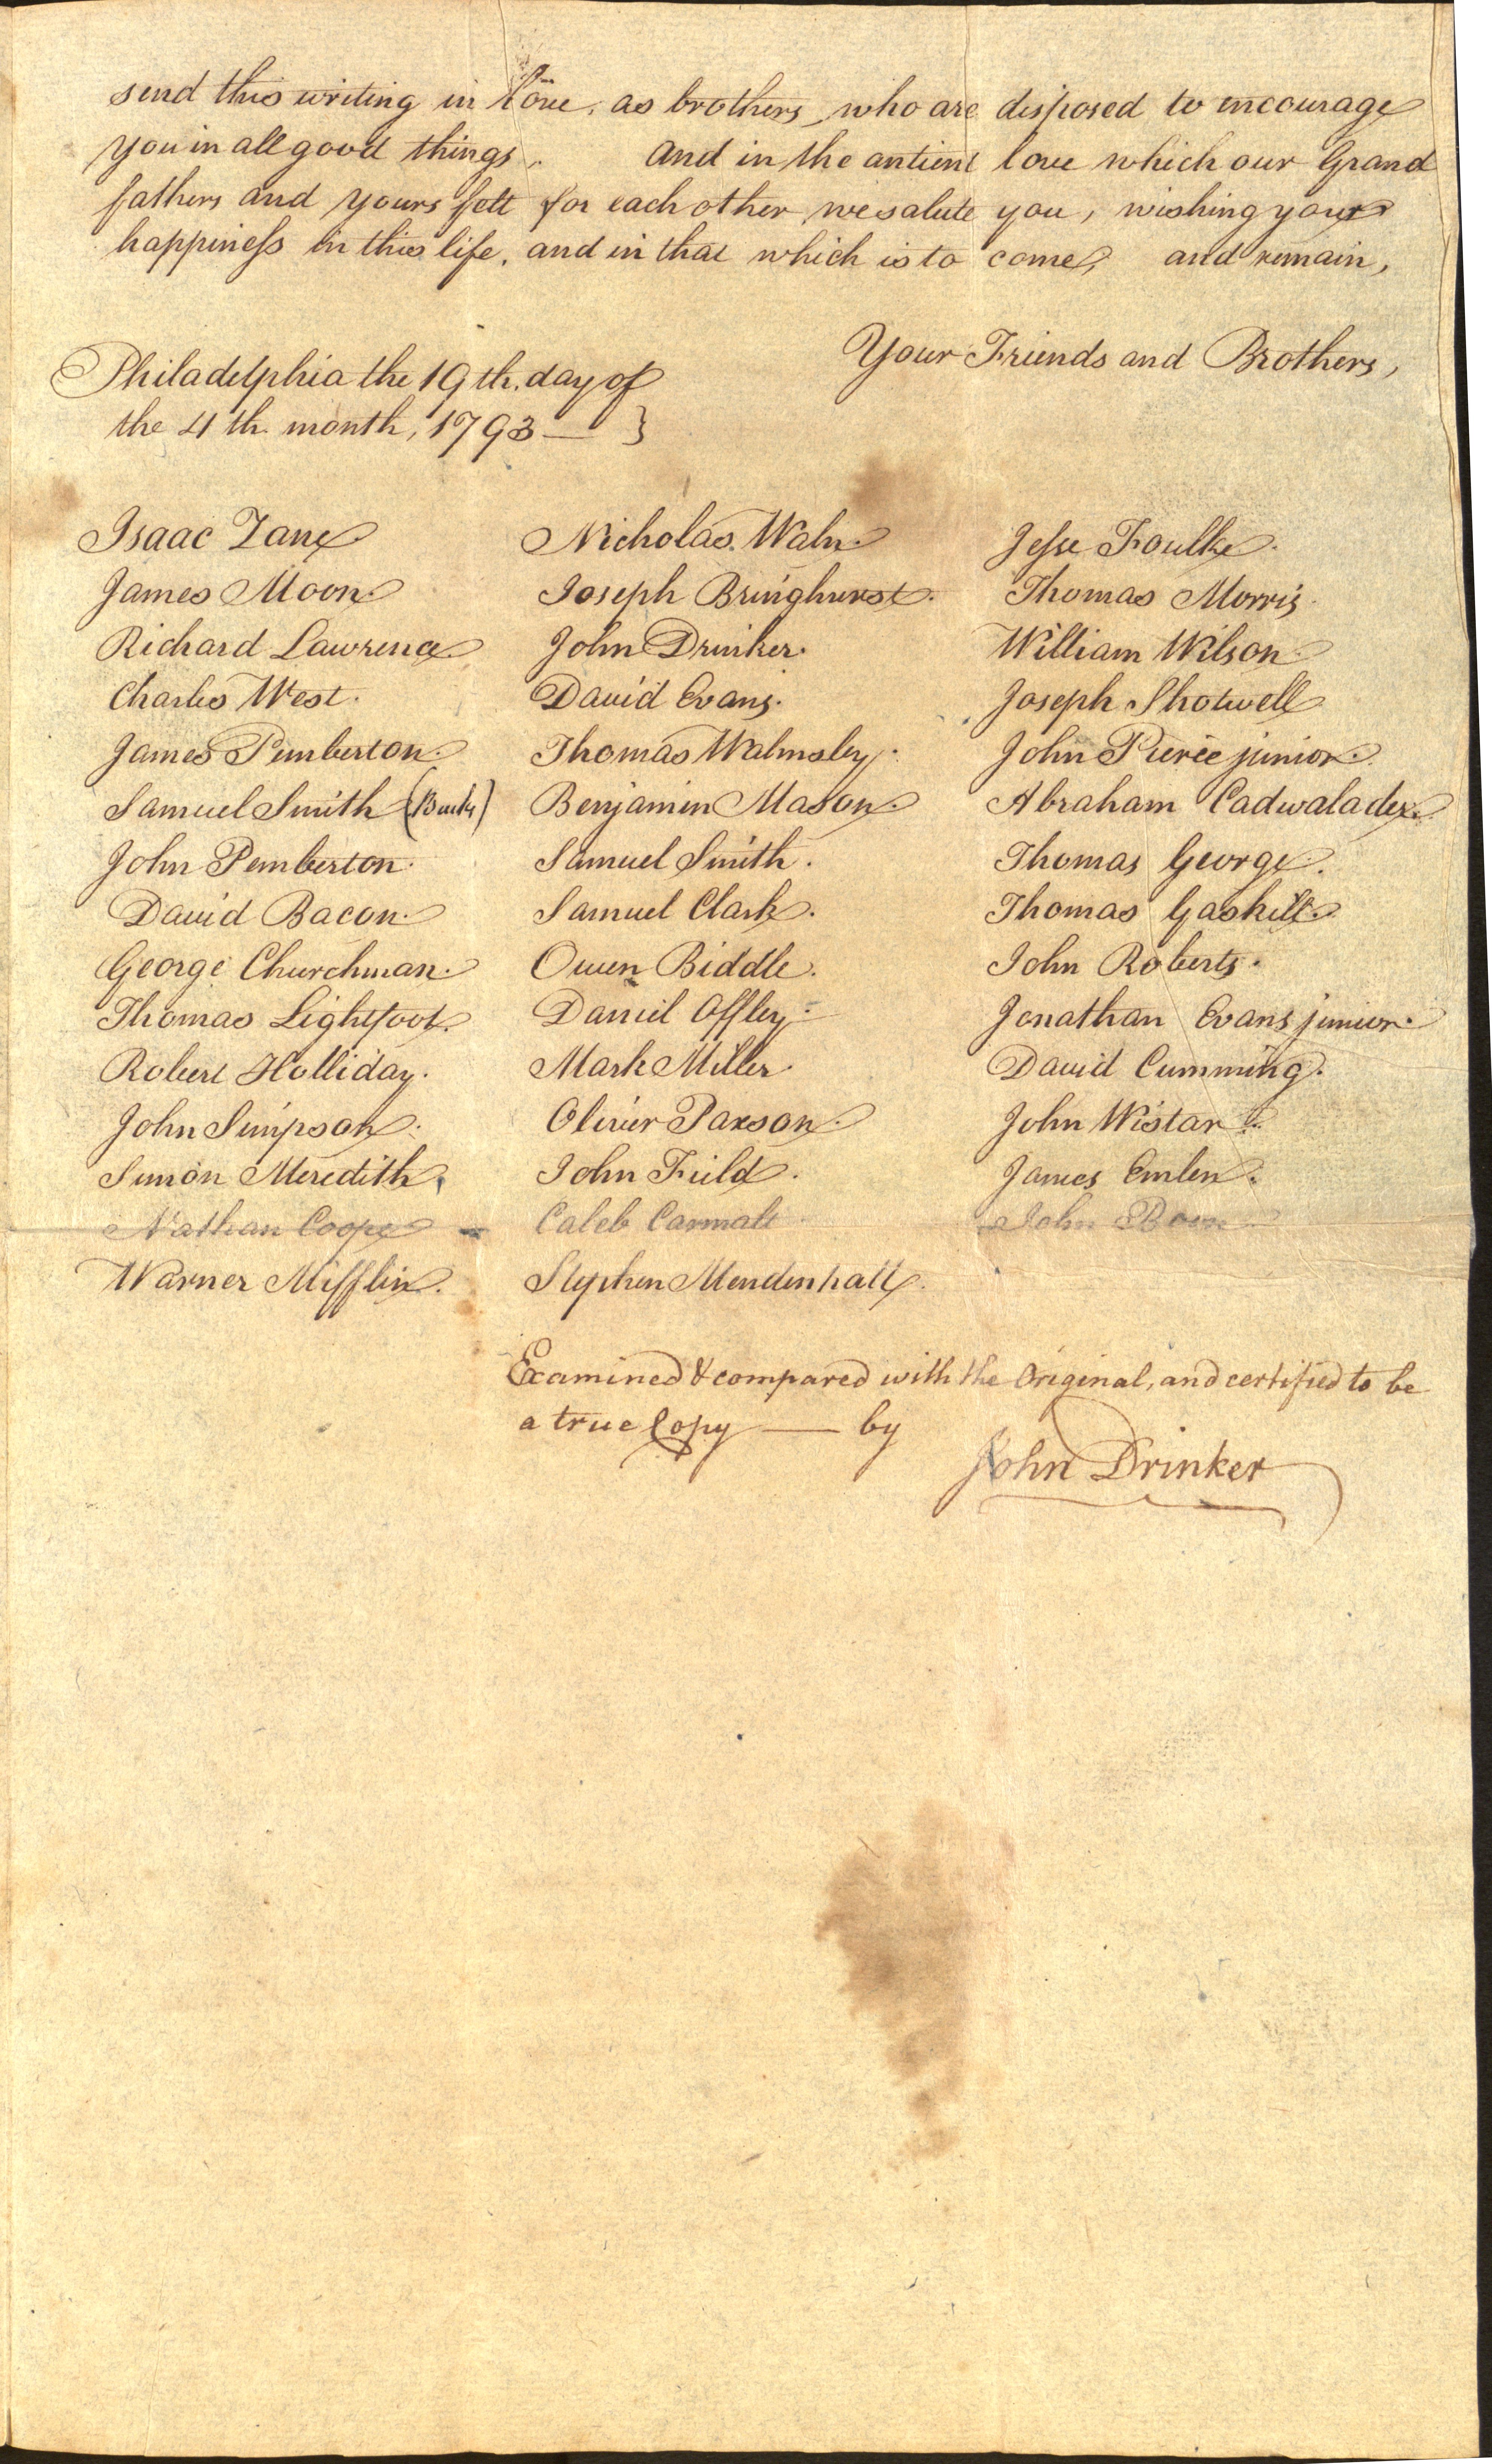 send this writing in love, as brothers, who are disposed to encourage
you in all good things. And in the antient love which our Grand
fathers and yours felt for each other we salute you, wishing your
happiness in this life, and in that which is to come, and remain,
Your Friends and Brothers,
Philadelphia the 19th. day of
the 4th month, 1793 — }
Isaac Zane
James Moon.
Richard Lawrence
Charles West.
James Pemberton.
Samuel Smith (Bucks)
John Pemberton.
David Bacon.
George Churchman.
Thomas Lightfoot.
Robert Holliday.
John Simpson.
Simon Meredith.
Nathan Coope
Warner Mifflin.
Nicholas Waln.
Joseph Bringhurst.
John Drinker.
David Evans.
Thomas Walmsley.
Benjamin Mason.
Samuel Smith.
Samuel Clark.
Owen Biddle.
Daniel Offley.
Mark Miller.
Oliver Paxson.
John Field.
Caleb Carmalt
Stephen Mendenhall.
Jesse Foulke.
Thomas Morris.
William Wilson
Joseph Shotwell
John Pierce junior.
Abraham Cadwalader.
Thomas George.
Thomas Gaskill.
John Roberts.
Jonathan Evans junior.
David Cumming.
John Wistar.
James Emlen.
John
Examined & compared with the Original, and certified to be
a true Copy — by
John Drinker